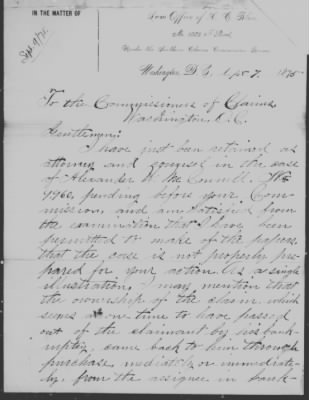 IN THE MATTER OF
Law Office of
Before the Southern Claims Commission
Washington, D.C., Sept 7, 1875
To the Commissioners of Claims
Washington, D.C.
Gentlemen:
I have just been retained as
attorney and counsel in the case
of Alexander W.
pending before your Com-
mission, and am satisfied from
the examination that I have been
permitted to make of the papers
that the case is not properly pre-
pared for your action. As a single
illustration, I may mention that
the ownership of the claim which
seems at one time to have passed
out of the claimant by his bank-
ruptcy, came back to him through
purchase, mediately or immediate-
ly, from the assignee in bank-